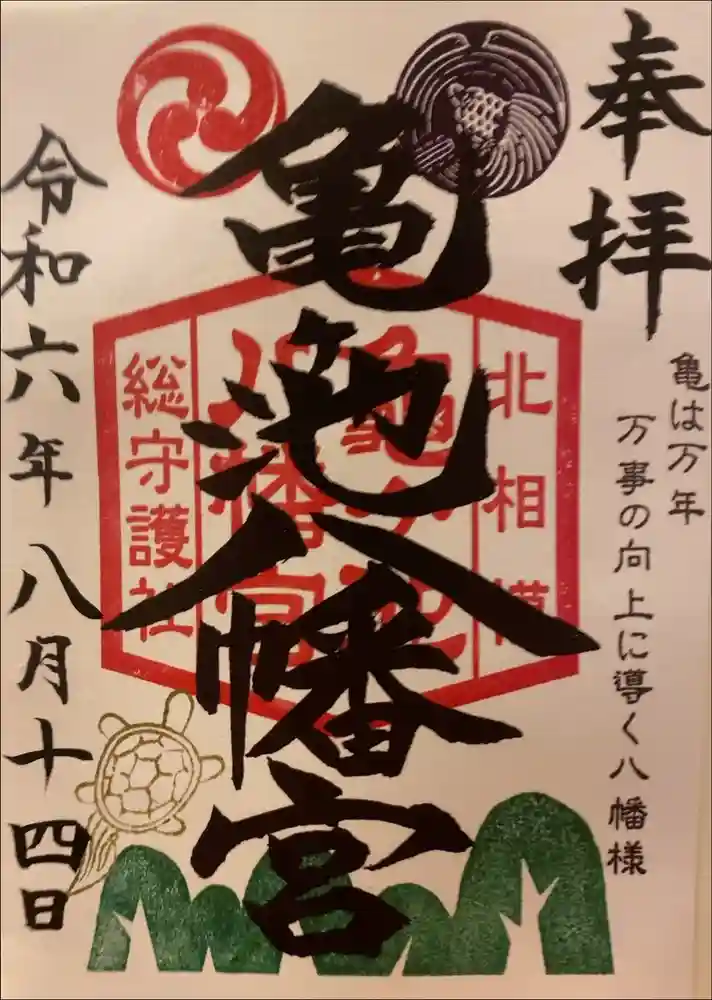 奉拝
亀は万年
万事の向上に導く八幡様
亀池八幡宮
北相模
亀ヶ池
八幡宮
総守護社
令和六年八月十四日